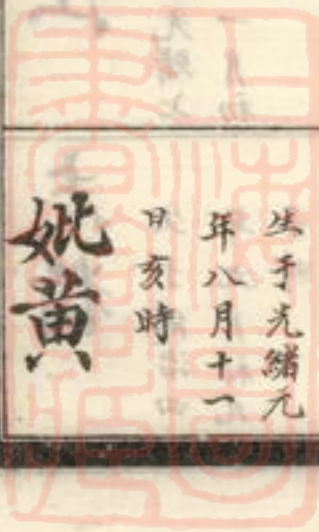 生于光緒元
年八月十一
日亥時
妣黄